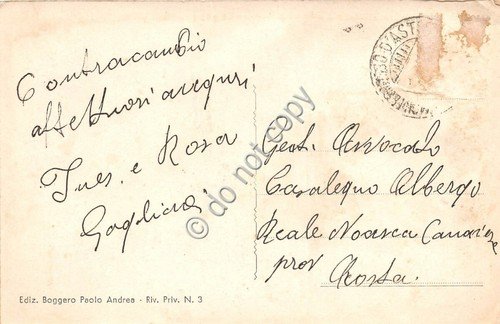 Contracambio
affettuosi auguri
Ines. e Rosa
Gagliardi
Gent. Avvocato
Casalegno Albergo
Reale Noasca Canavese
prov Aosta.
Ediz. Boggero Paolo Andrea - Riv. Priv. N. 3
© do not copy
D'ASTI